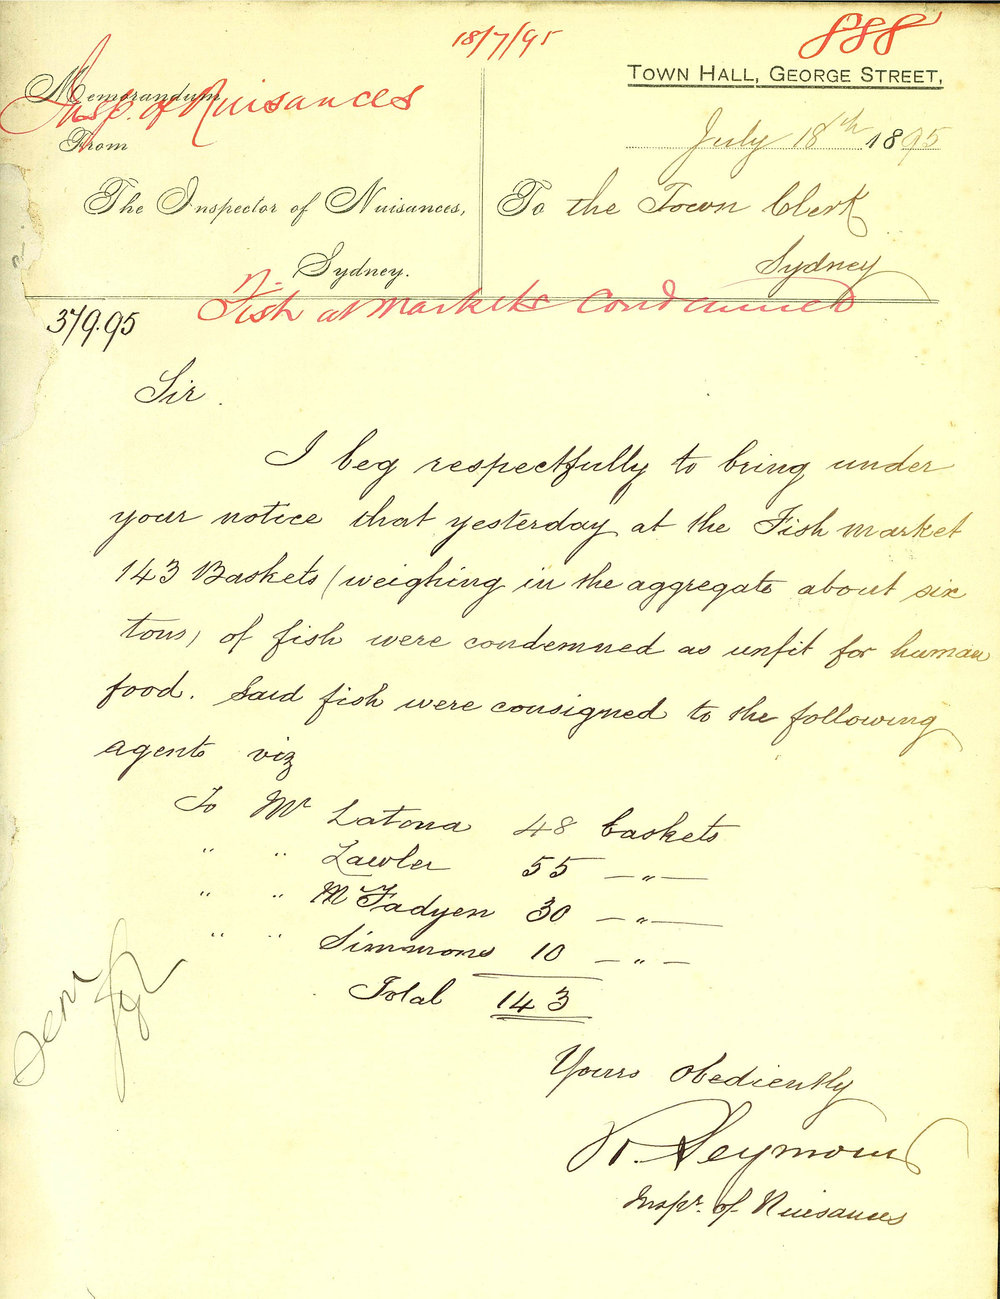 18/7/95
888
TOWN HALL, GEORGE STREET,
Memorandum
Insp. of Nuisances
From
July 18th 1895
The Inspector of Nuisances,
To the Town Clerk
Sydney.
Sydney
Fish at Markets Condemned
379.95
Sir
I beg respectfully to bring under
your notice that yesterday at the Fish market
143 Baskets (weighing in the aggregate about six
tons) of fish were condemned as unfit for human
food. Said fish were consigned to the following
agents viz
To Mr Latona 48 baskets
" " Lawler 55 — " —
" " McFadyen 30 — " —
" " Simmons 10 — " —
Total 143
Yours obediently
R. Seymour
Inspr. of Nuisances